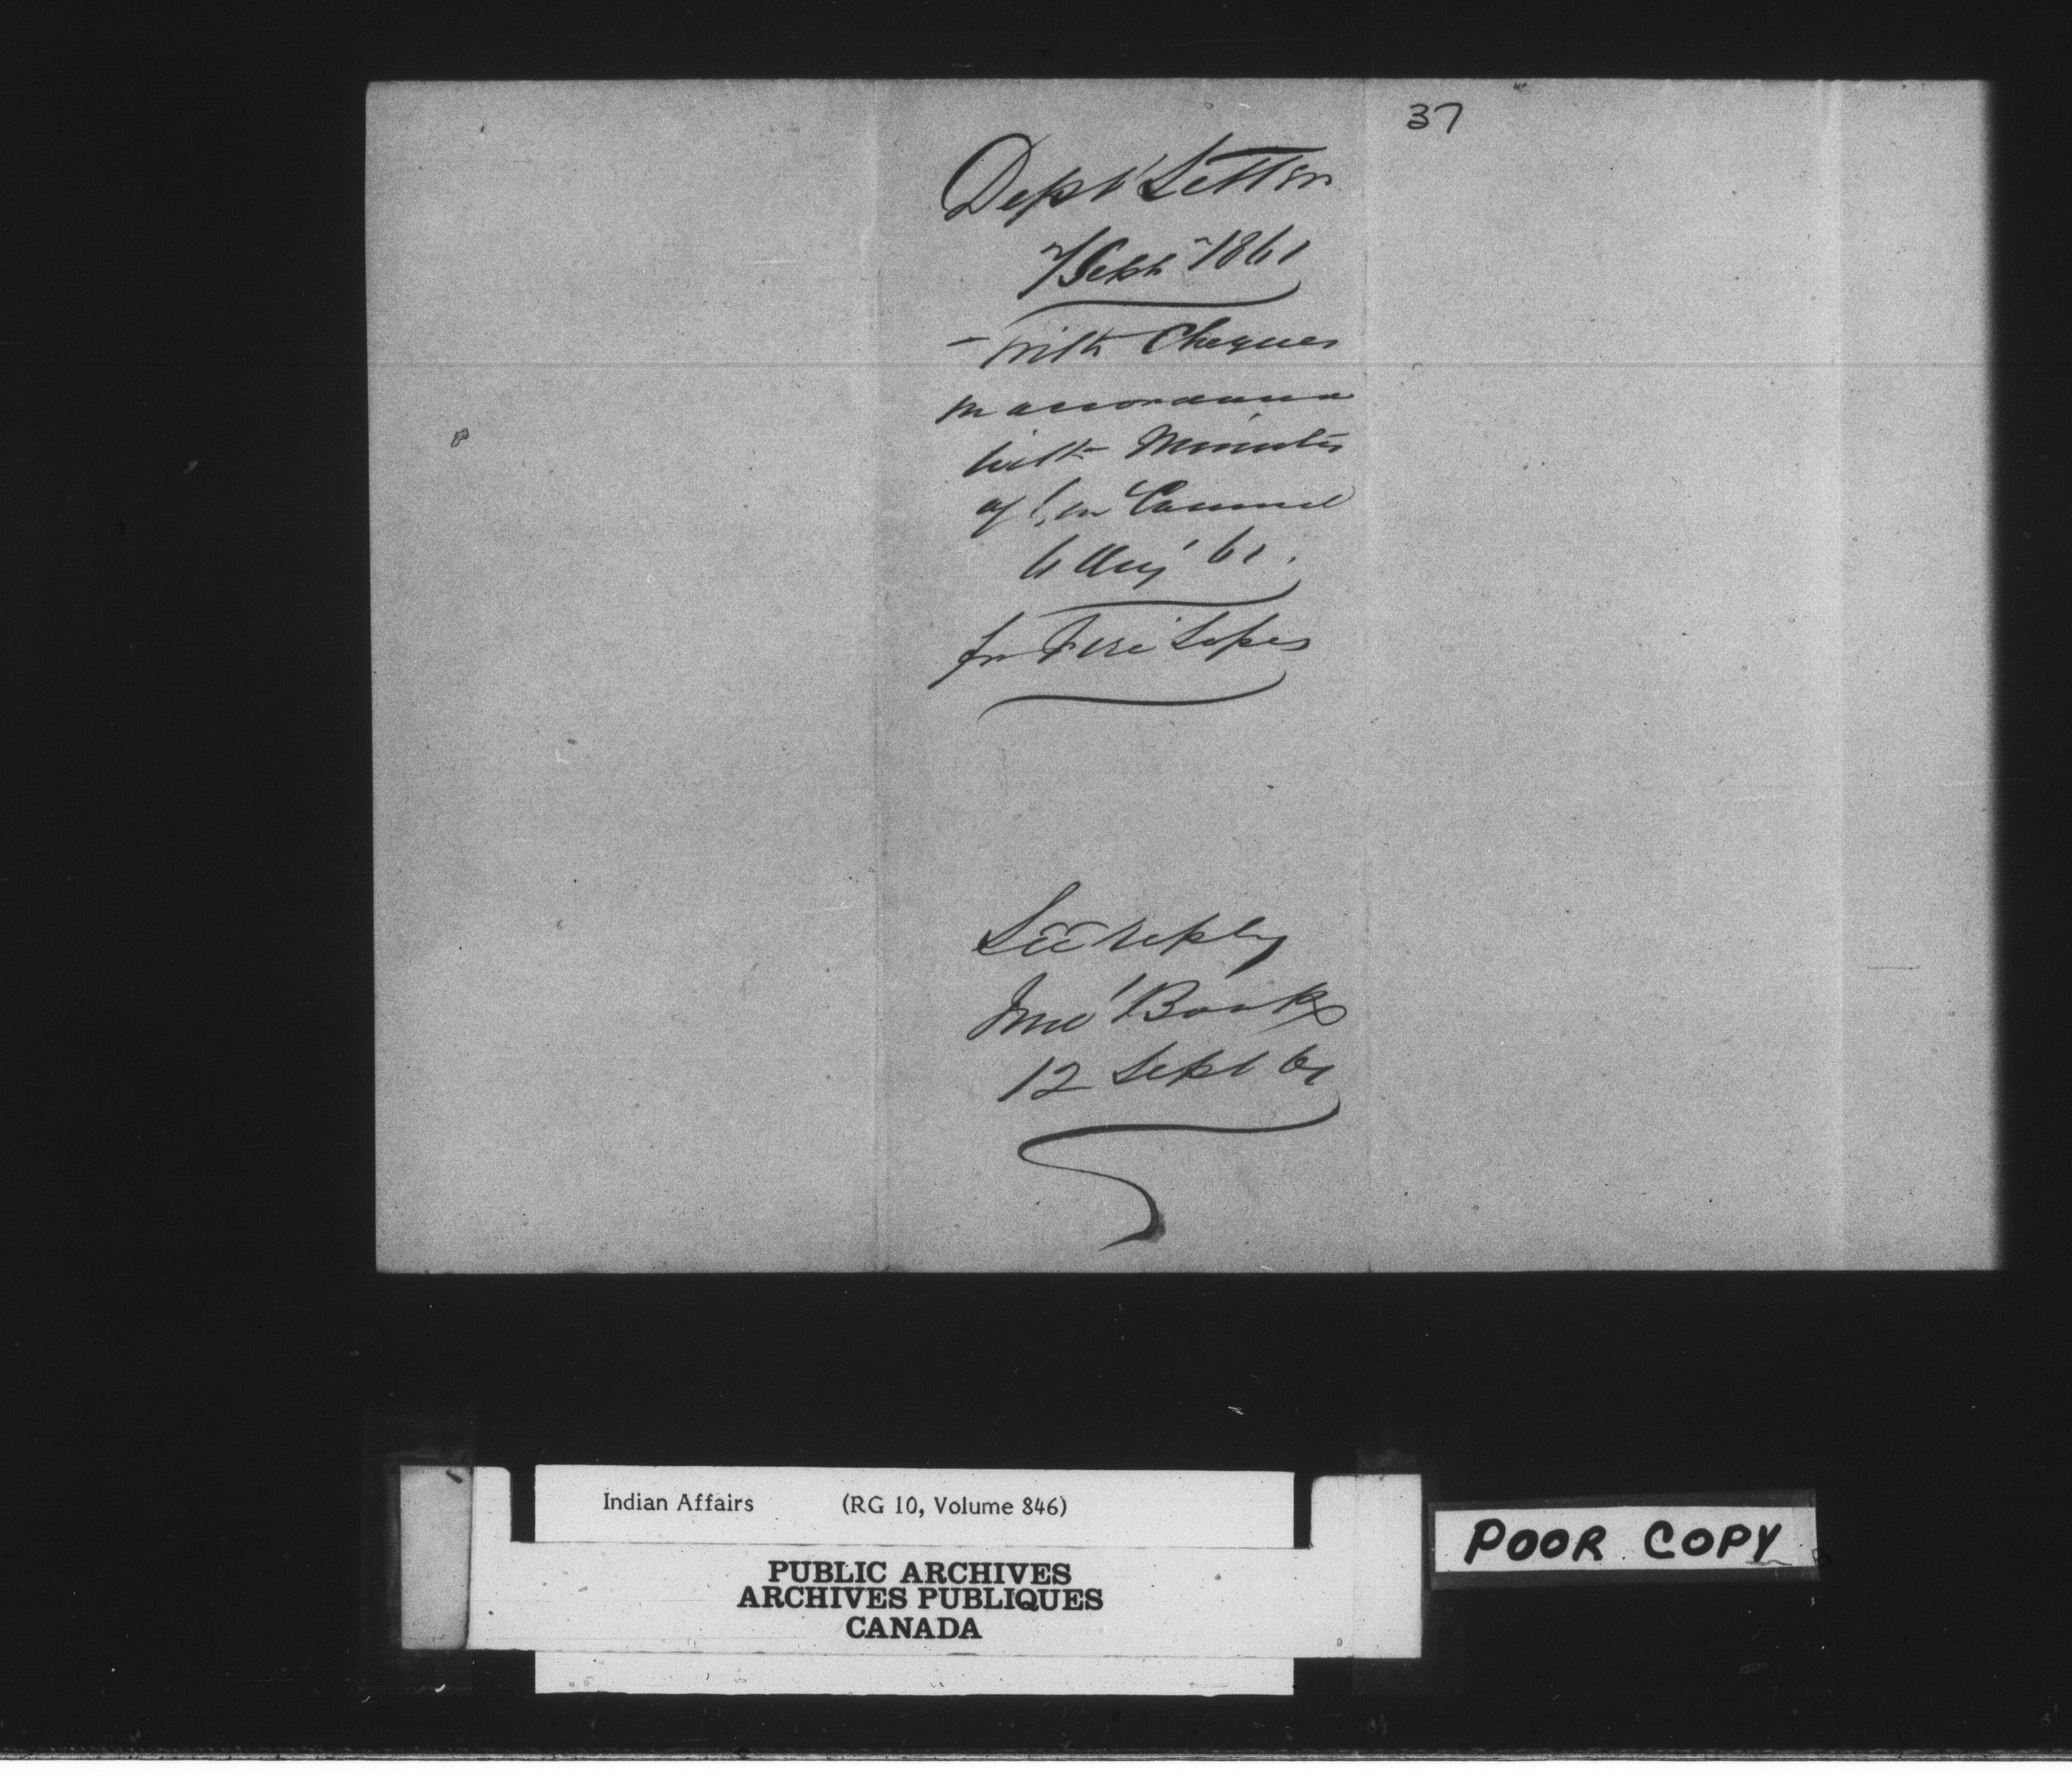 37
Dept Letter
7 Sept 1861
- with Cheques
in accordance
with Minutes
of Gen Council
6 Aug' 61.
for Fire Losses
See reply
Inds' Book
12 Sept 61
Indian Affairs (RG 10, Volume 846)
PUBLIC ARCHIVES
ARCHIVES PUBLIQUES
CANADA
POOR COPY